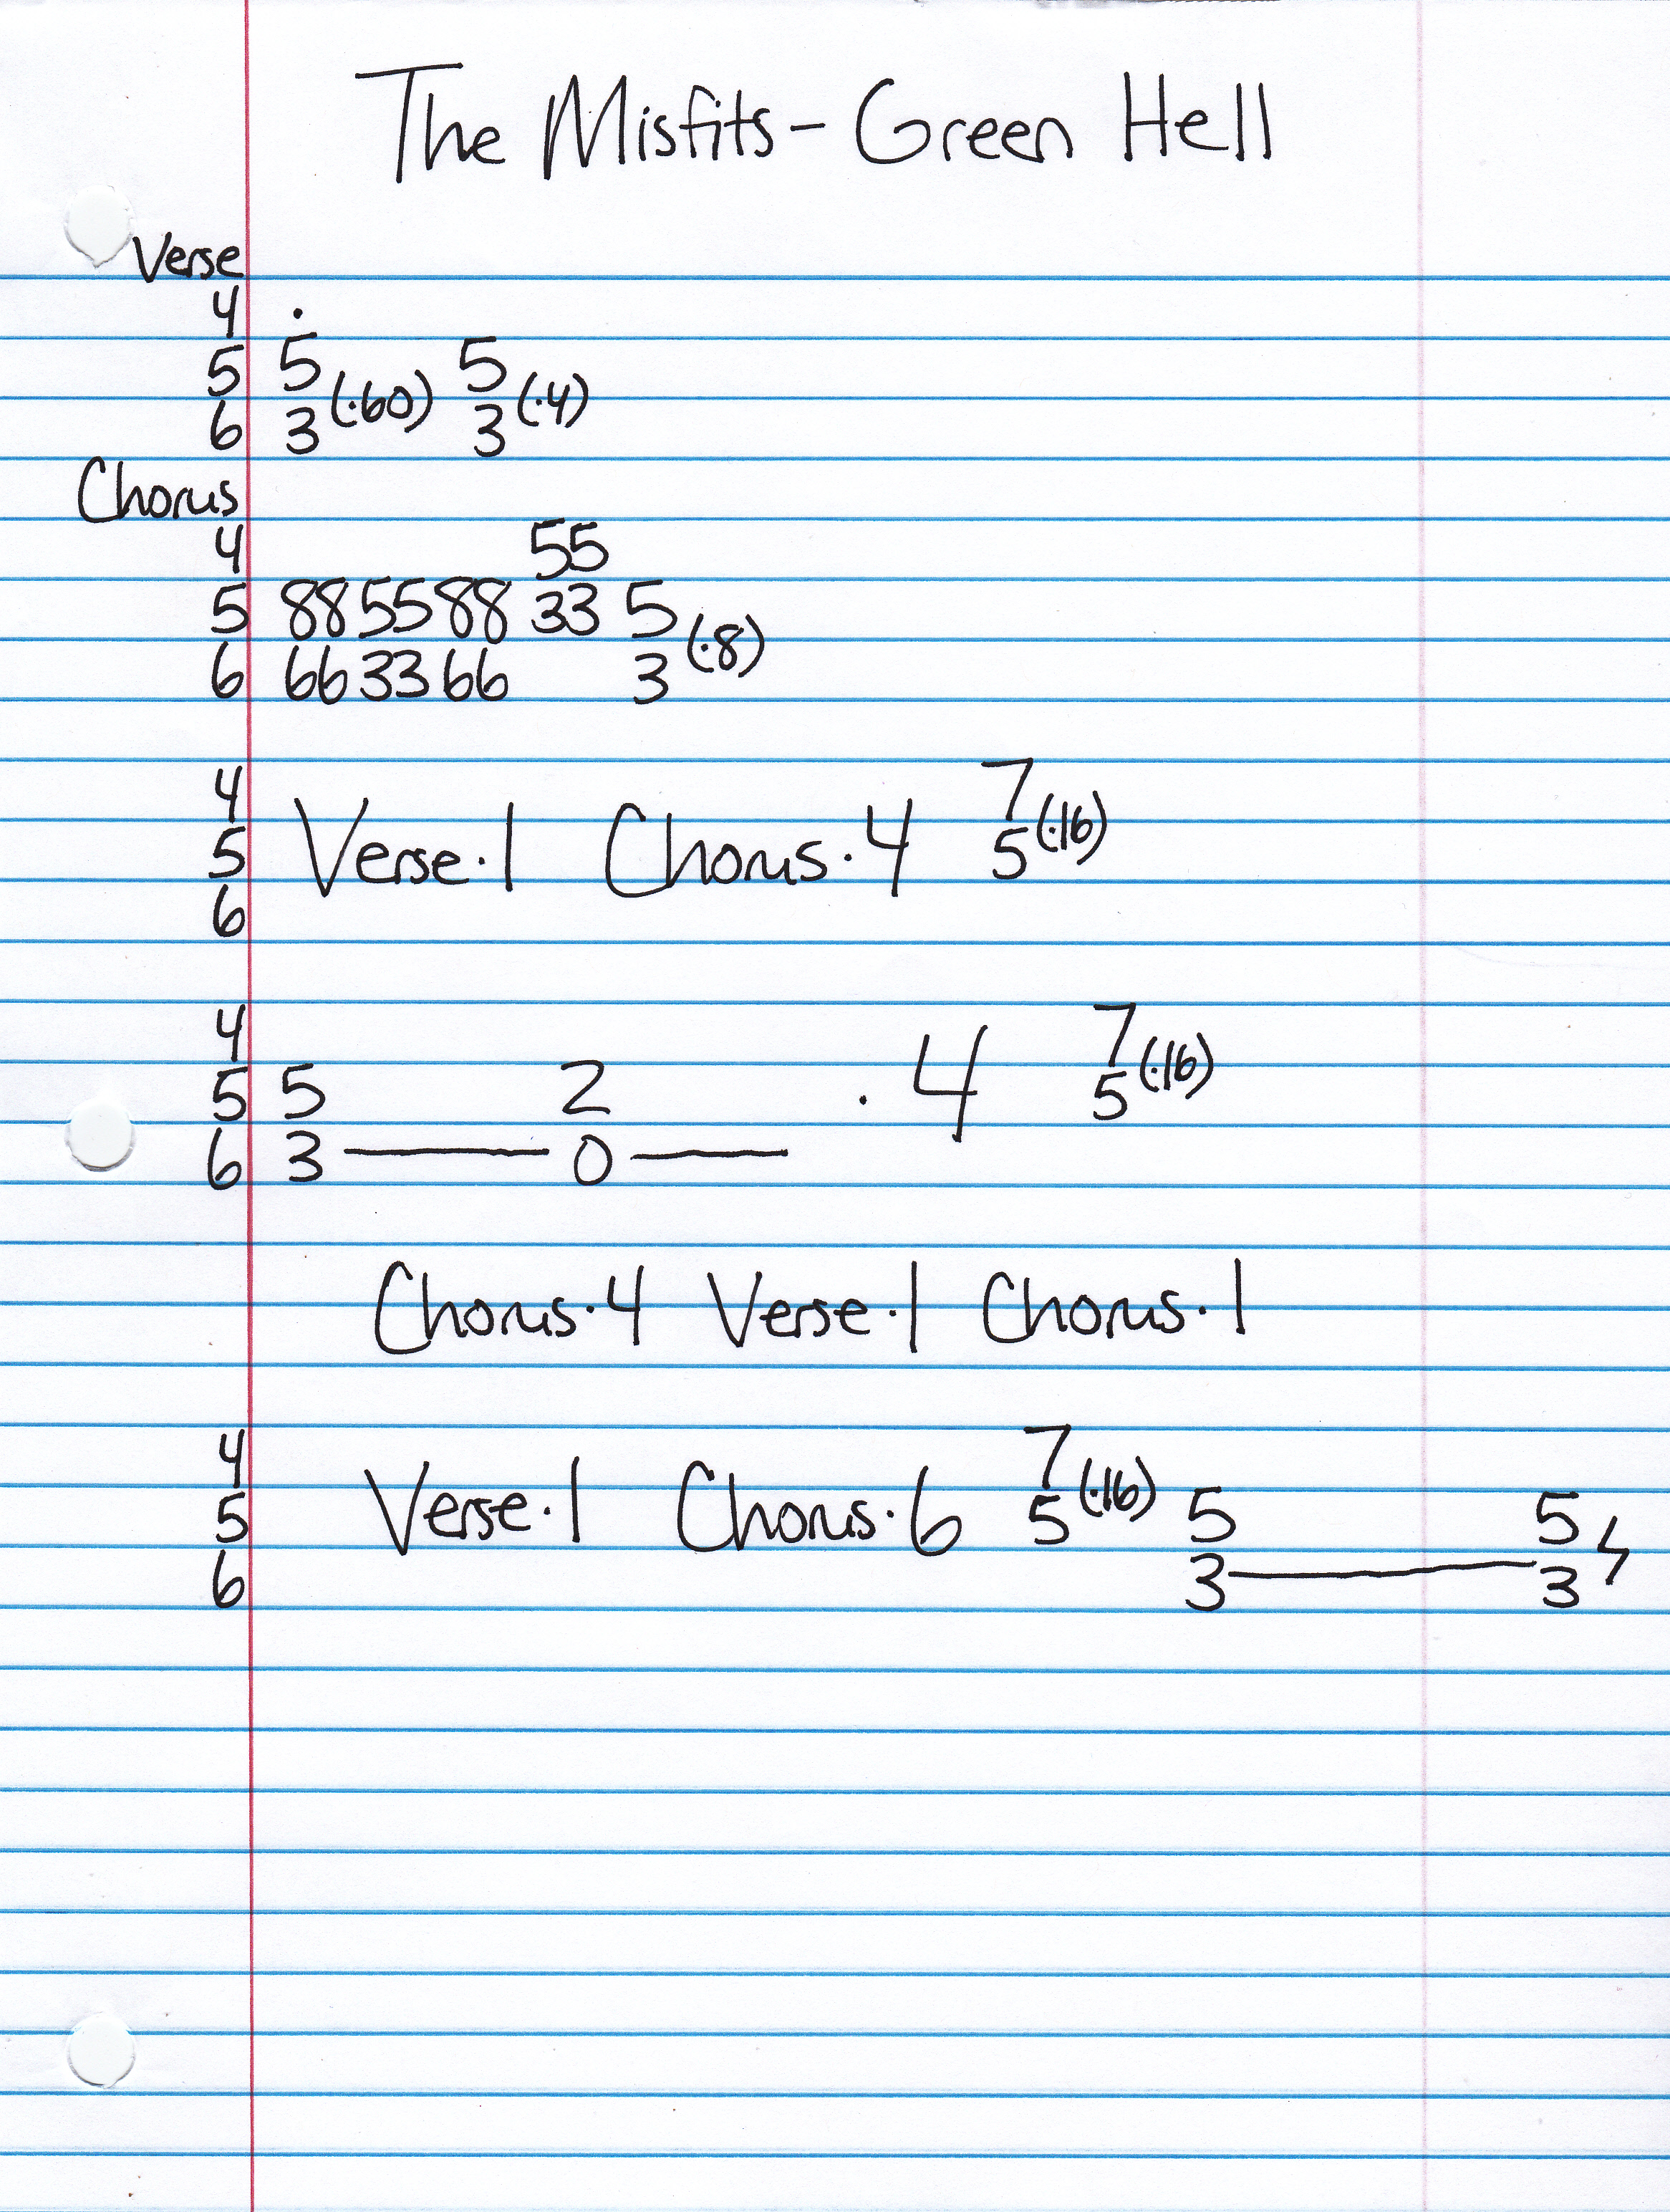 The Misfits - Green Hell
Verse
4 .
5 5 5
6 3 (·60) 3 (·4)
Chorus
4 55
5 885588 33 5
6 663366 3 (·8)
4 7
5 Verse·1 Chorus·4 5 (·16)
6
4 7
5 5 2 · 4 5 (·16)
6 3 — 0 —
Chorus·4 Verse·1 Chorus·1
4 7
5 Verse·1 Chorus·6 5 (·16) 5 5
6 3 — 3